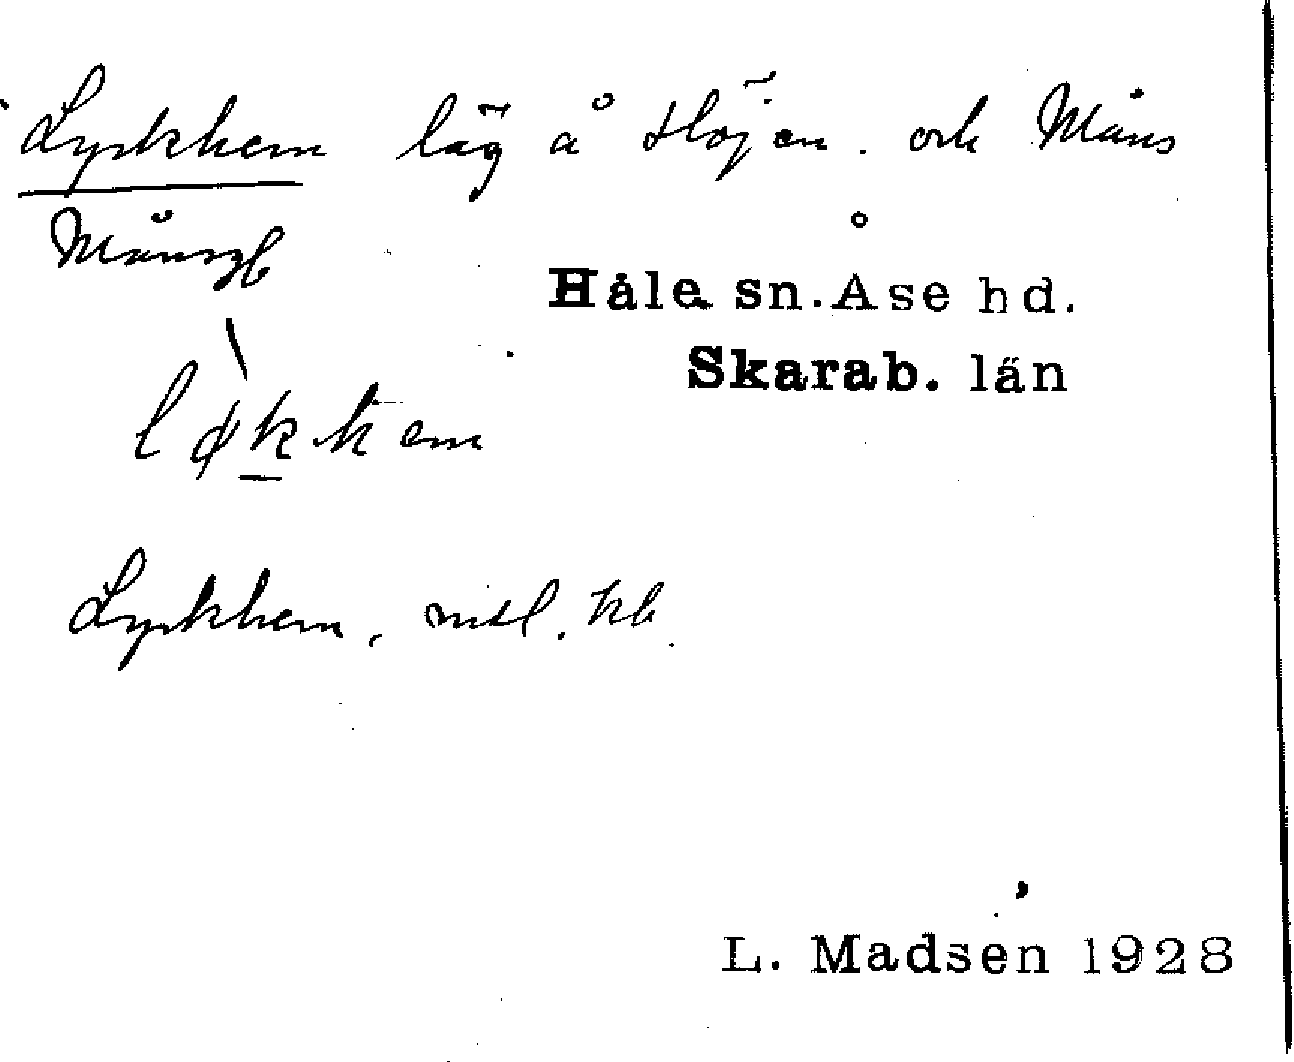 Lyckhem läg å Höjen. och Måns
Månsgb
Håle sn. Åse hd.
Skarab. län
løkhem
Lyckhem, mtl. kb.
L. Madsen 1928